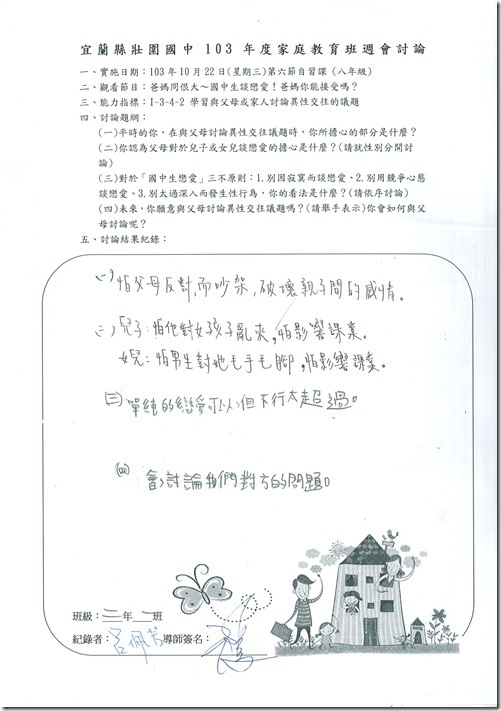 宜蘭縣壯圍國中 103 年度家庭教育班週會討論
一、實施日期：103 年 10 月 22 日(星期三)第六節自習課 (八年級)
二、觀看節目：爸媽冏很大～國中生談戀愛！爸媽你能接受嗎？
三、能力指標：I-3-4-2 學習與父母或家人討論異性交往的議題
四、討論題綱：
(一)平時的你，在與父母討論異性交往議題時，你所擔心的部分是什麼？
(二)你認為父母對於兒子或女兒談戀愛的擔心是什麼？(請就性別分開討
論)
(三)對於「國中生戀愛」三不原則：1.別因寂寞而談戀愛、2.別用競爭心態
談戀愛、3.別太過深入而發生性行為，你的看法是什麼？(請依序討論)
(四)未來，你願意與父母討論異性交往議題嗎？(請舉手表示)你會如何與父
母討論呢？
五、討論結果紀錄：
(一)怕父母反對,而吵架,破壞親子間的感情。
(二)兒子：怕他對女孩子亂來,怕影響課業。
女兒：怕男生對她毛手毛腳,怕影響課業。
(三)單純的戀愛可以,但不行太超過。
(四) 會,討論我們對方的問題。
班級：二年一班
紀錄者：呂佩芳 導師簽名：